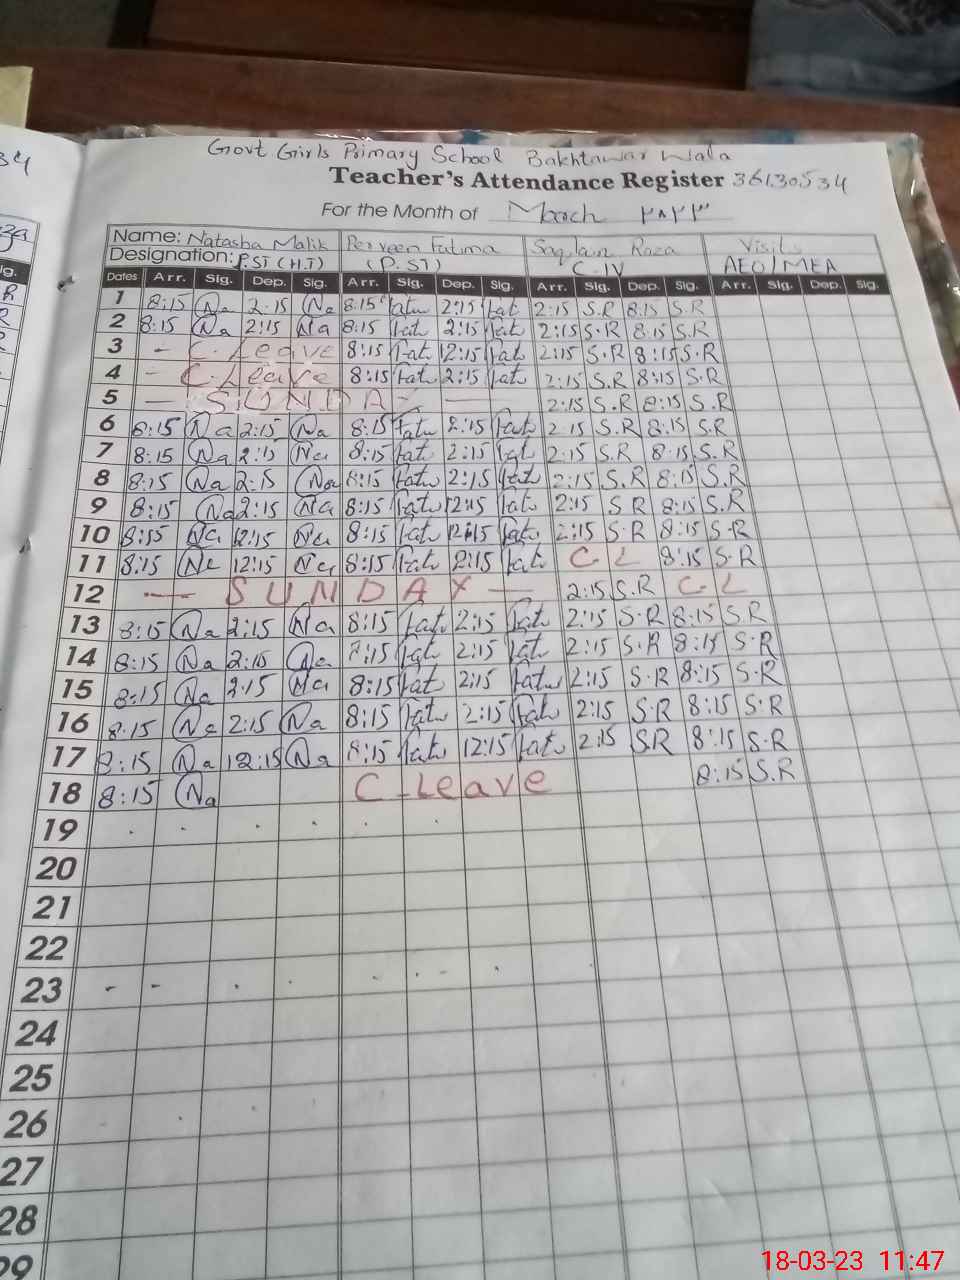 Govt Girls Primary School Bakhtawar Wala
Teacher's Attendance Register 36130534
For the Month of March ۲۰۲۳
Name: Natasha Malik Perveen Fatima Saqlain Raza Visits
Designation: P.ST (H.T) (P.ST) C-IV AEO/MEA
Dates Arr. Sig. Dep. Sig. Arr. Sig. Dep. Sig. Arr. Sig. Dep. Sig. Arr. Sig. Dep. Sig.
1 8:15 Na 2:15 Na 8:15 Fatu 2:15 Fat 2:15 S.R 8:15 S.R
2 8:15 Na 2:15 Na 8:15 Fat 2:15 Fatu 2:15 S.R 8:15 S.R
3 - C.Leave 8:15 Fat 12:15 Fatu 2:15 S.R 8:15 S.R
4 - C.Leave 8:15 Fat 2:15 Fatu 2:15 S.R 8:15 S.R
5 — SUNDAY — 2:15 S.R 8:15 S.R
6 8:15 Na 2:15 Na 8:15 Fatu 2:15 Fatu 2:15 S.R 8:15 S.R
7 8:15 Na 2:15 Na 8:15 Fatu 2:15 Fatu 2:15 S.R 8:15 S.R
8 8:15 Na 2:15 Na 8:15 Fatu 2:15 Fatu 2:15 S.R 8:15 S.R
9 8:15 Na 2:15 Na 8:15 Fatu 12:15 Fatu 2:15 S R 8:15 S.R
10 8:15 Na 12:15 Na 8:15 Fatu 12:15 Fatu 2:15 S.R 8:15 S.R
11 8:15 Na 12:15 Na 8:15 Fatu 2:15 Fatu C L 8:15 S.R
12 — SUNDAY — 2:15 S.R C L
13 8:15 Na 2:15 Na 8:15 Fatu 2:15 Fatu 2:15 S.R 8:15 S.R
14 8:15 Na 2:15 Na 8:15 Fatu 2:15 Fatu 2:15 S.R 8:15 S.R
15 8:15 Na 2:15 Na 8:15 Fat 2:15 Fatu 2:15 S.R 8:15 S.R
16 8:15 Na 2:15 Na 8:15 Fatu 2:15 Fatu 2:15 S.R 8:15 S.R
17 8:15 Na 12:15 Na 8:15 Fatu 12:15 Fatu 2:15 S.R 8:15 S.R
18 8:15 Na C-Leave 8:15 S.R
19
20
21
22
23
24
25
26
27
28
29
18-03-23 11:47